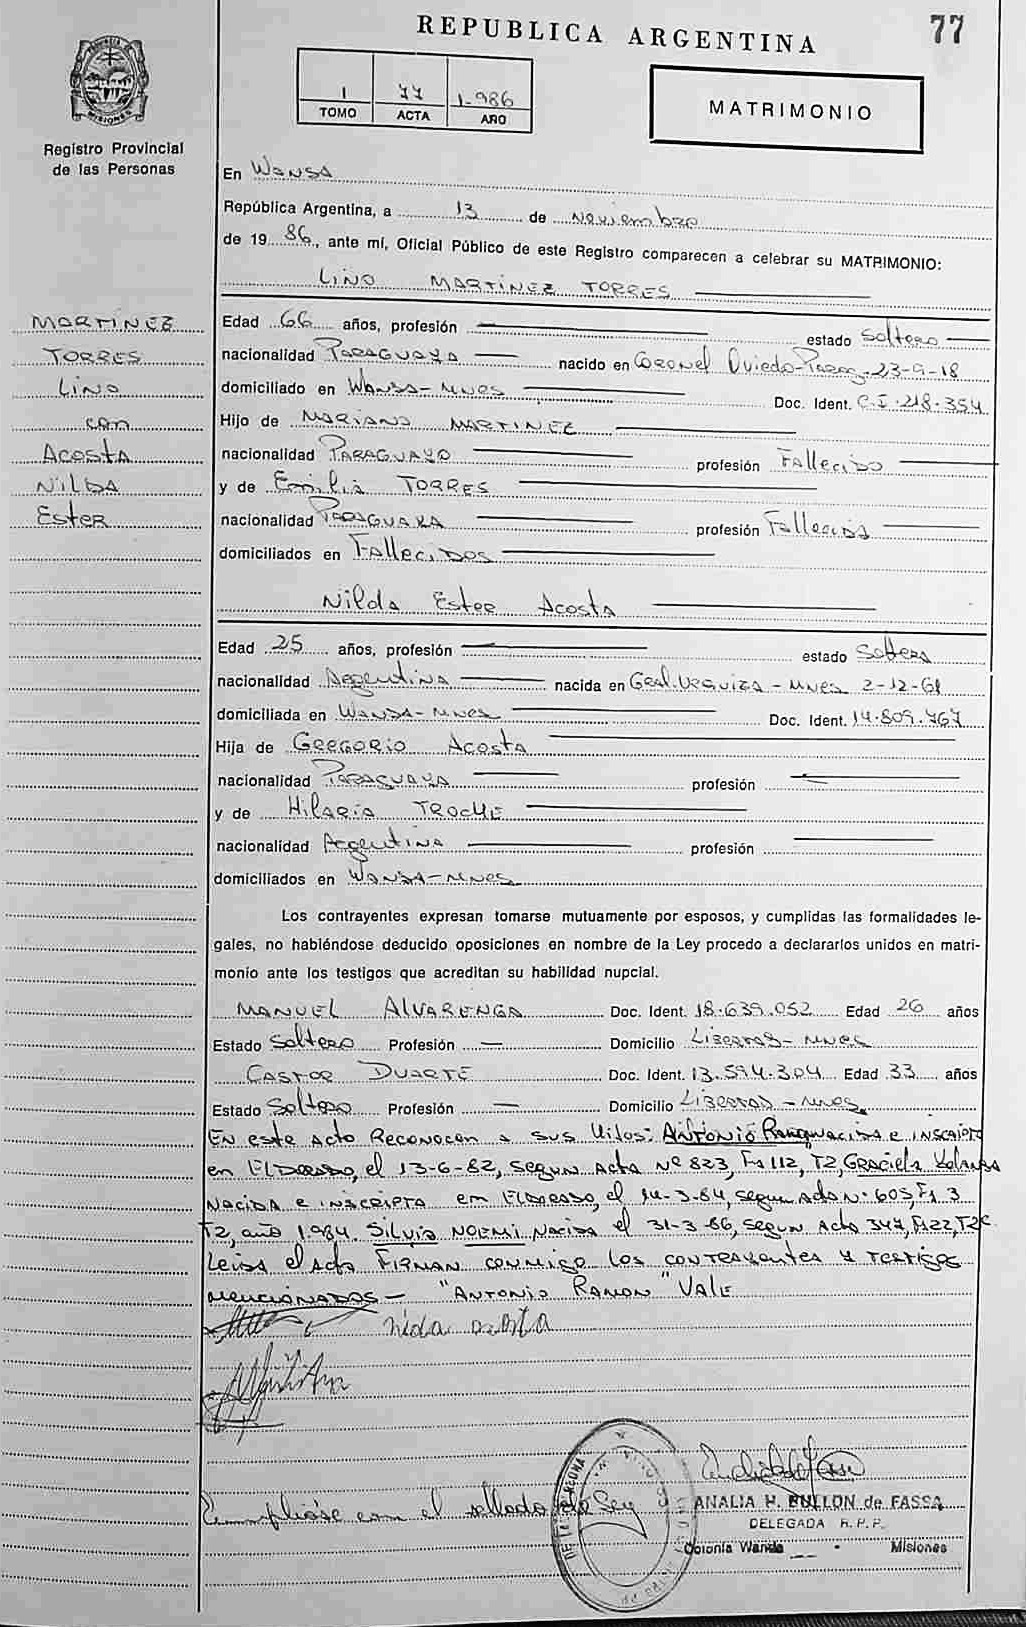 REPUBLICA ARGENTINA
77
1 77 1.986
TOMO ACTA AÑO
MATRIMONIO
MISIONES
Registro Provincial
de las Personas
En Wanda
República Argentina, a 13 de Noviembre
de 19 86, ante mí, Oficial Público de este Registro comparecen a celebrar su MATRIMONIO:
Lino MARTINEZ TORRES
MARTINEZ
TORRES
Lino
con
Acosta
Nilda
Ester
Edad 66 años, profesión estado Soltero
nacionalidad PARAGUAYA nacido en Coronel Oviedo-Parag. 23-9-18
domiciliado en Wanda-Mnes Doc. Ident. C.I. 218.354
Hijo de MARIANO MARTINEZ
nacionalidad PARAGUAYO profesión Fallecido
y de Emilia TORRES
nacionalidad PARAGUAYA profesión Fallecida
domiciliados en Fallecidos
Nilda Ester Acosta
Edad 25 años, profesión estado Soltera
nacionalidad Argentina nacida en Gral. Urquiza - Mnes 2-12-61
domiciliada en Wanda-Mnes Doc. Ident. 14.809.767
Hija de Gregorio Acosta
nacionalidad PARAGUAYA profesión
y de Hilaria TROCHE
nacionalidad Argentina profesión
domiciliados en Wanda-Mnes
Los contrayentes expresan tomarse mutuamente por esposos, y cumplidas las formalidades le-
gales, no habiéndose deducido oposiciones en nombre de la Ley procedo a declararlos unidos en matri-
monio ante los testigos que acreditan su habilidad nupcial.
MANUEL ALVARENGA Doc. Ident. 18.639.052 Edad 26 años
Estado Soltero Profesión — Domicilio Libertad - Mnes
CASTOR DUARTE Doc. Ident. 13.594.304 Edad 33 años
Estado Soltero Profesión — Domicilio Libertad - Mnes.
En este Acto Reconocen a sus Hijos: ANTONIO Ramon nacido e inscripto
en ELDORADO, el 13-6-82, segun Acta Nº 823, Fs 112, T2, Graciela Yolanda
Nacida e inscripta em ELDORADO, el 14-3-84, segun Acta Nº 605, Fs 3
T2, año 1.984. Silvia NOEMI Nacida el 31-3-86, segun Acta 347, Fs 22, T2C
Leida el Acta FIRMAN conmigo los contrayentes y testigos
mencionados - "Antonio Ramon" Vale
nida acosta
Cumpliose con el sellado de Ley
ANALIA H. BULLON de FASSA
DELEGADA R.P.P.
Colonia Wanda - Misiones